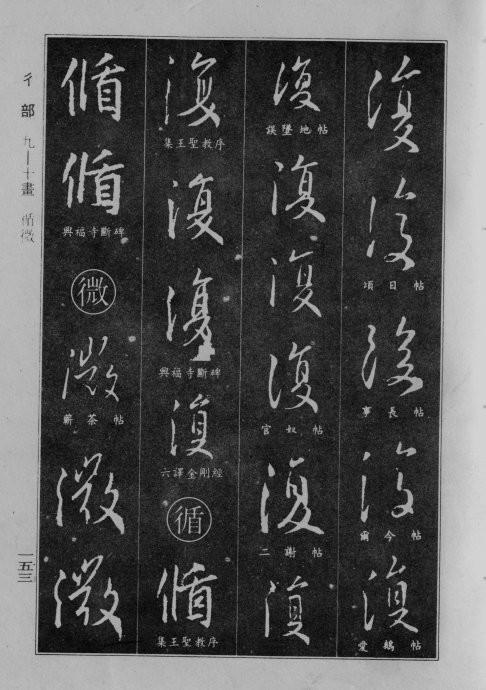 復
復
項日帖
復
事長帖
復
爾今帖
復
愛鵝帖
復
誤墜地帖
復
復
復
官奴帖
復
二謝帖
復
復
集王聖教序
復
復
興福寺斷碑
復
六譯金剛經
循
循
集王聖教序
循
循
興福寺斷碑
微
微
蘄茶帖
微
微
彳部 九—十畫 循微
一五三